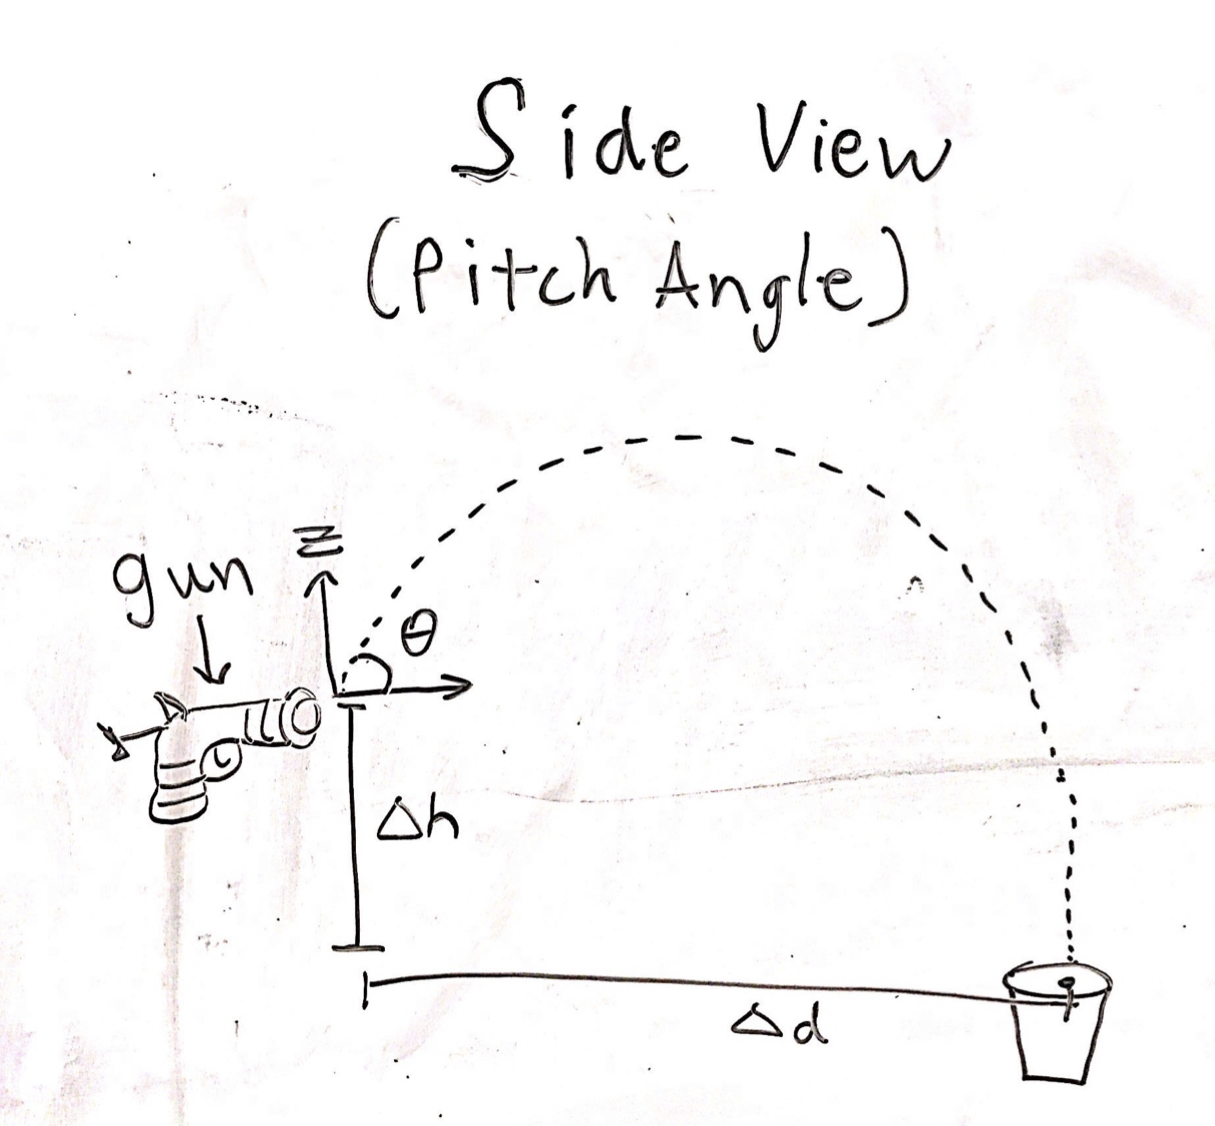 Side View
(Pitch Angle)
gun
Z
θ
Δh
Δd